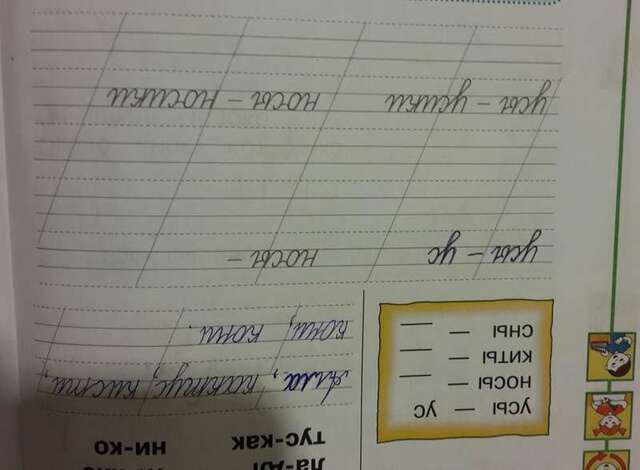 ла-Ал
тус-как
ни-ко
усы — ус
носы — __
киты — __
сны — __
Алла, кактус, кисти,
кони, кони.
усы – ус носы –
усы – усики носы – носики